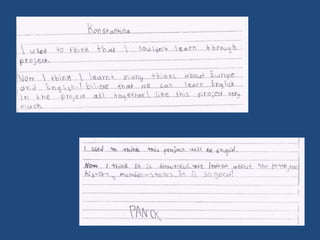 Konstantina
I used to think that I couldn't learn through
project.
Now I think I learnt many thinks about Europe
and English. I bilieve that we can learn English
in the project all together. I like this project very
much
I used to think this project will be stupid.
Now I think it is beautiful. We learn about the
history, memberstates. It is so good!
PANOS